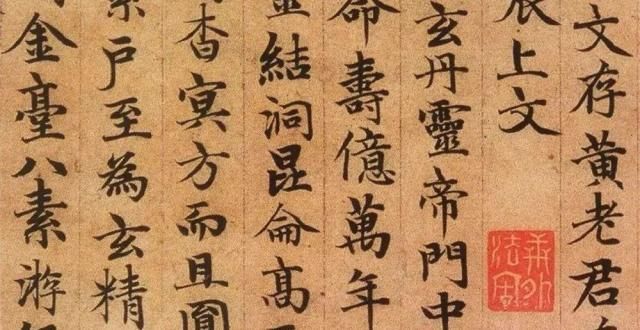 文存黃老君
辰上文
玄丹靈帝門中
命壽億萬年
結洞昆侖高
杳冥方而且圓
戶至為玄精
金臺八素游